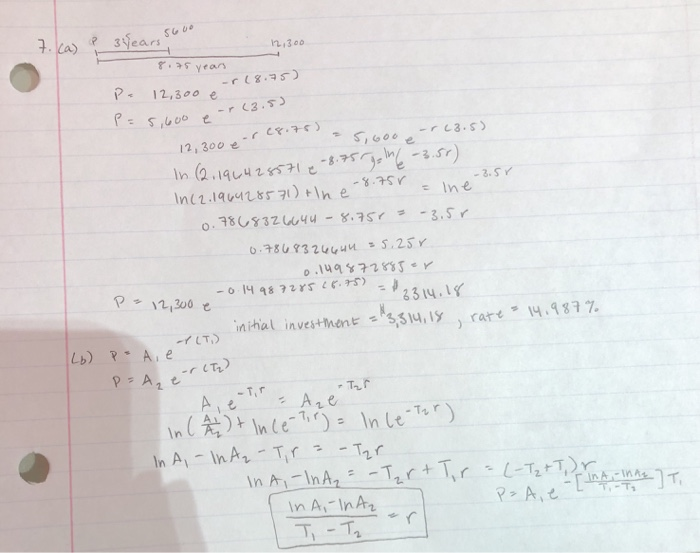 7. (a) P 3.5 years 5600 12,300
8.75 years
P = 12,300 e^{-r(8.75)}
P = 5,600 e^{-r(3.5)}
12,300 e^{-r(8.75)} = 5,600 e^{-r(3.5)}
ln(2.196428571 e^{-8.75r}) = ln(e^{-3.5r})
ln(2.196428571) + ln e^{-8.75r} = ln e^{-3.5r}
0.7868326644 - 8.75r = -3.5r
0.7868326644 = 5.25r
0.149872885 = r
P = 12,300 e^{-0.14987285(8.75)} = $3314.18
initial investment = $3,314.18, rate = 14.987%
(b) P = A₁e^{-r(T₁)}
P = A₂e^{-r(T₂)}
A₁e^{-T₁r} = A₂e^{-T₂r}
ln(A₁/A₂) + ln(e^{-T₁r}) = ln(e^{-T₂r})
ln A₁ - ln A₂ - T₁r = -T₂r
ln A₁ - ln A₂ = -T₂r + T₁r = (-T₂ + T₁)r
(ln A₁ - ln A₂)/(T₁ - T₂) = r
P = A₁e^{-[(ln A₁ - ln A₂)/(T₁ - T₂)]T₁}